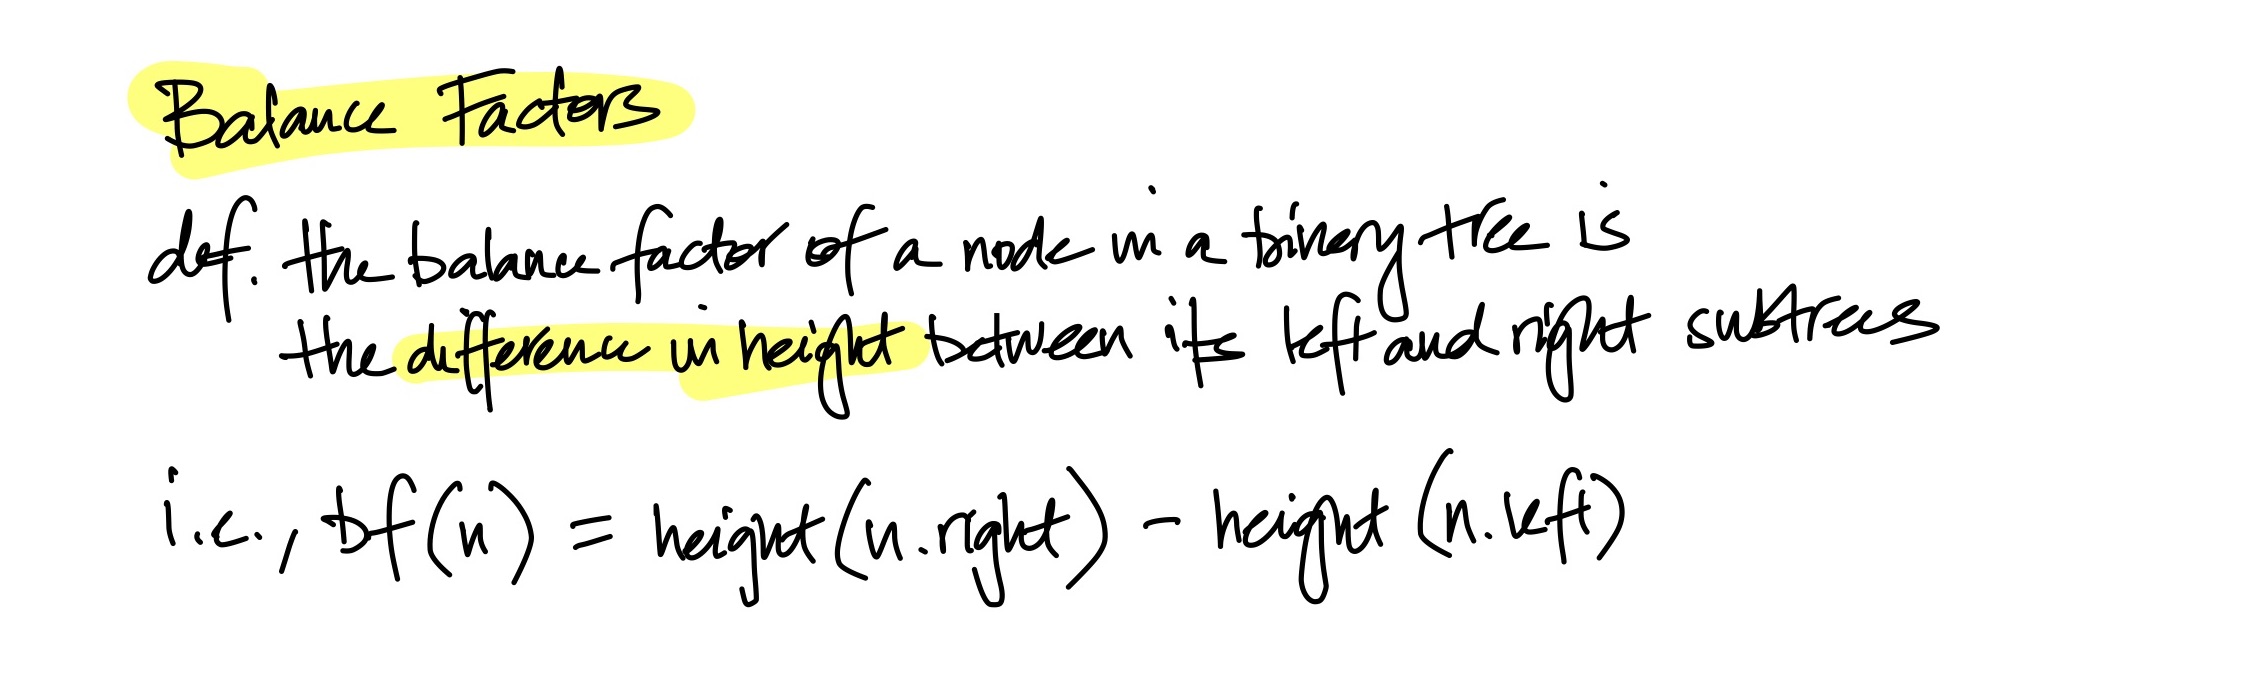 Balance Factors
def. the balance factor of a node in a binary tree is
the difference in height between its left and right subtrees
i.e., bf(n) = height(n.right) - height(n.left)